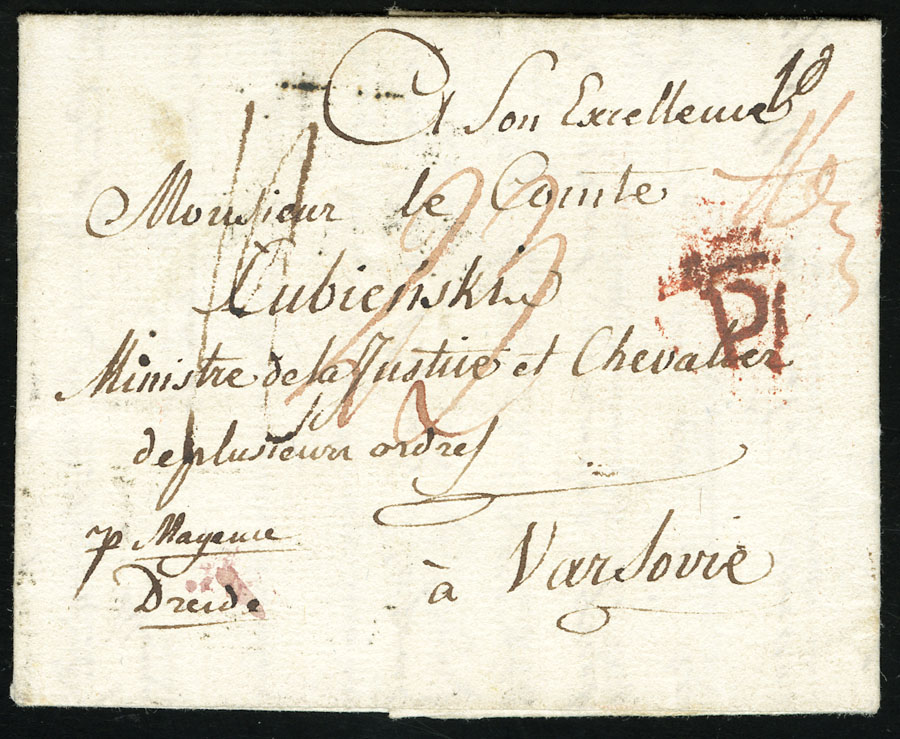 A Son Excellence
Monsieur le Comte
Lubieński
Ministre de la Justice et Chevalier
de plusieurs ordres
p Mayence
Dresde
à Varsovie
P